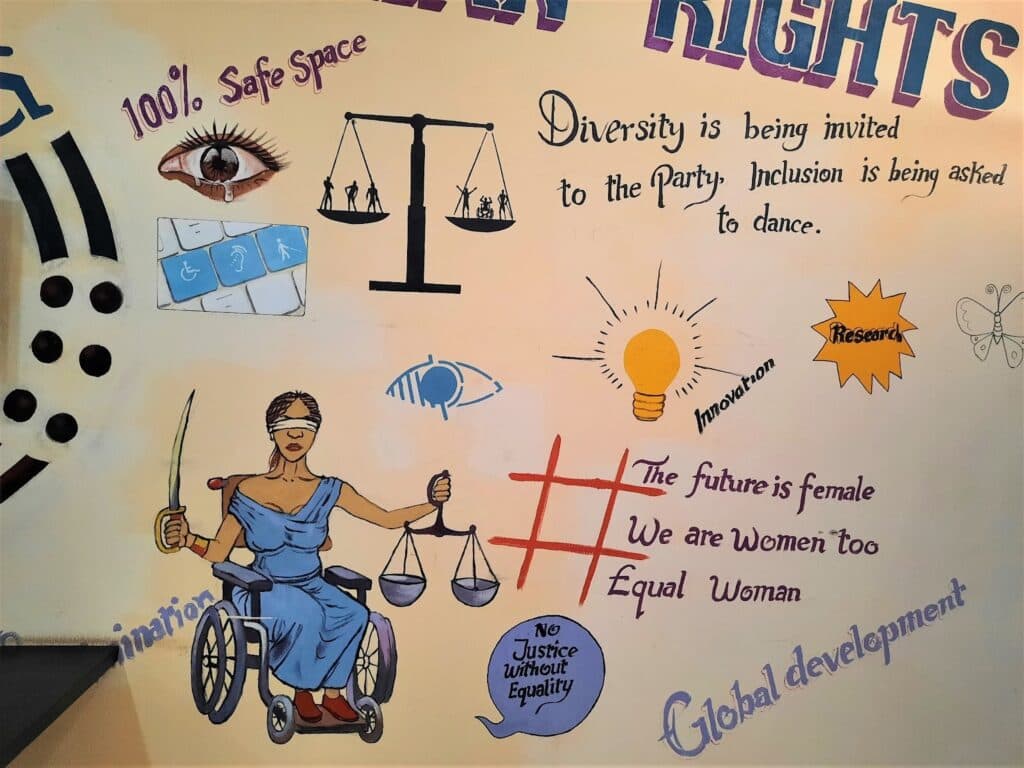 RIGHTS
100% Safe Space
Diversity is being invited
to the Party, Inclusion is being asked
to dance.
Research
Innovation
# The future is female
We are Women too
Equal Woman
No
Justice
Without
Equality
Global development